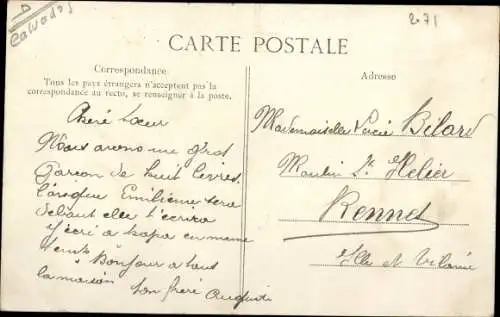 D
Calvados
2071
CARTE POSTALE
Correspondance
Tous les pays étrangers n'acceptent pas la
correspondance au recto, se renseigner à la poste.
Adresse
Chère Soeur
Nous avons un gros
garçon de huit livres.
Lorsque Emilienne sera
debout elle t'écrira
j'écri a papa en meme
temps Bonjour a tout
la maison ton frère Auguste
Mademoiselle Lucie Bélard
Moulin St Helier
Rennes
Ille et Vilaine